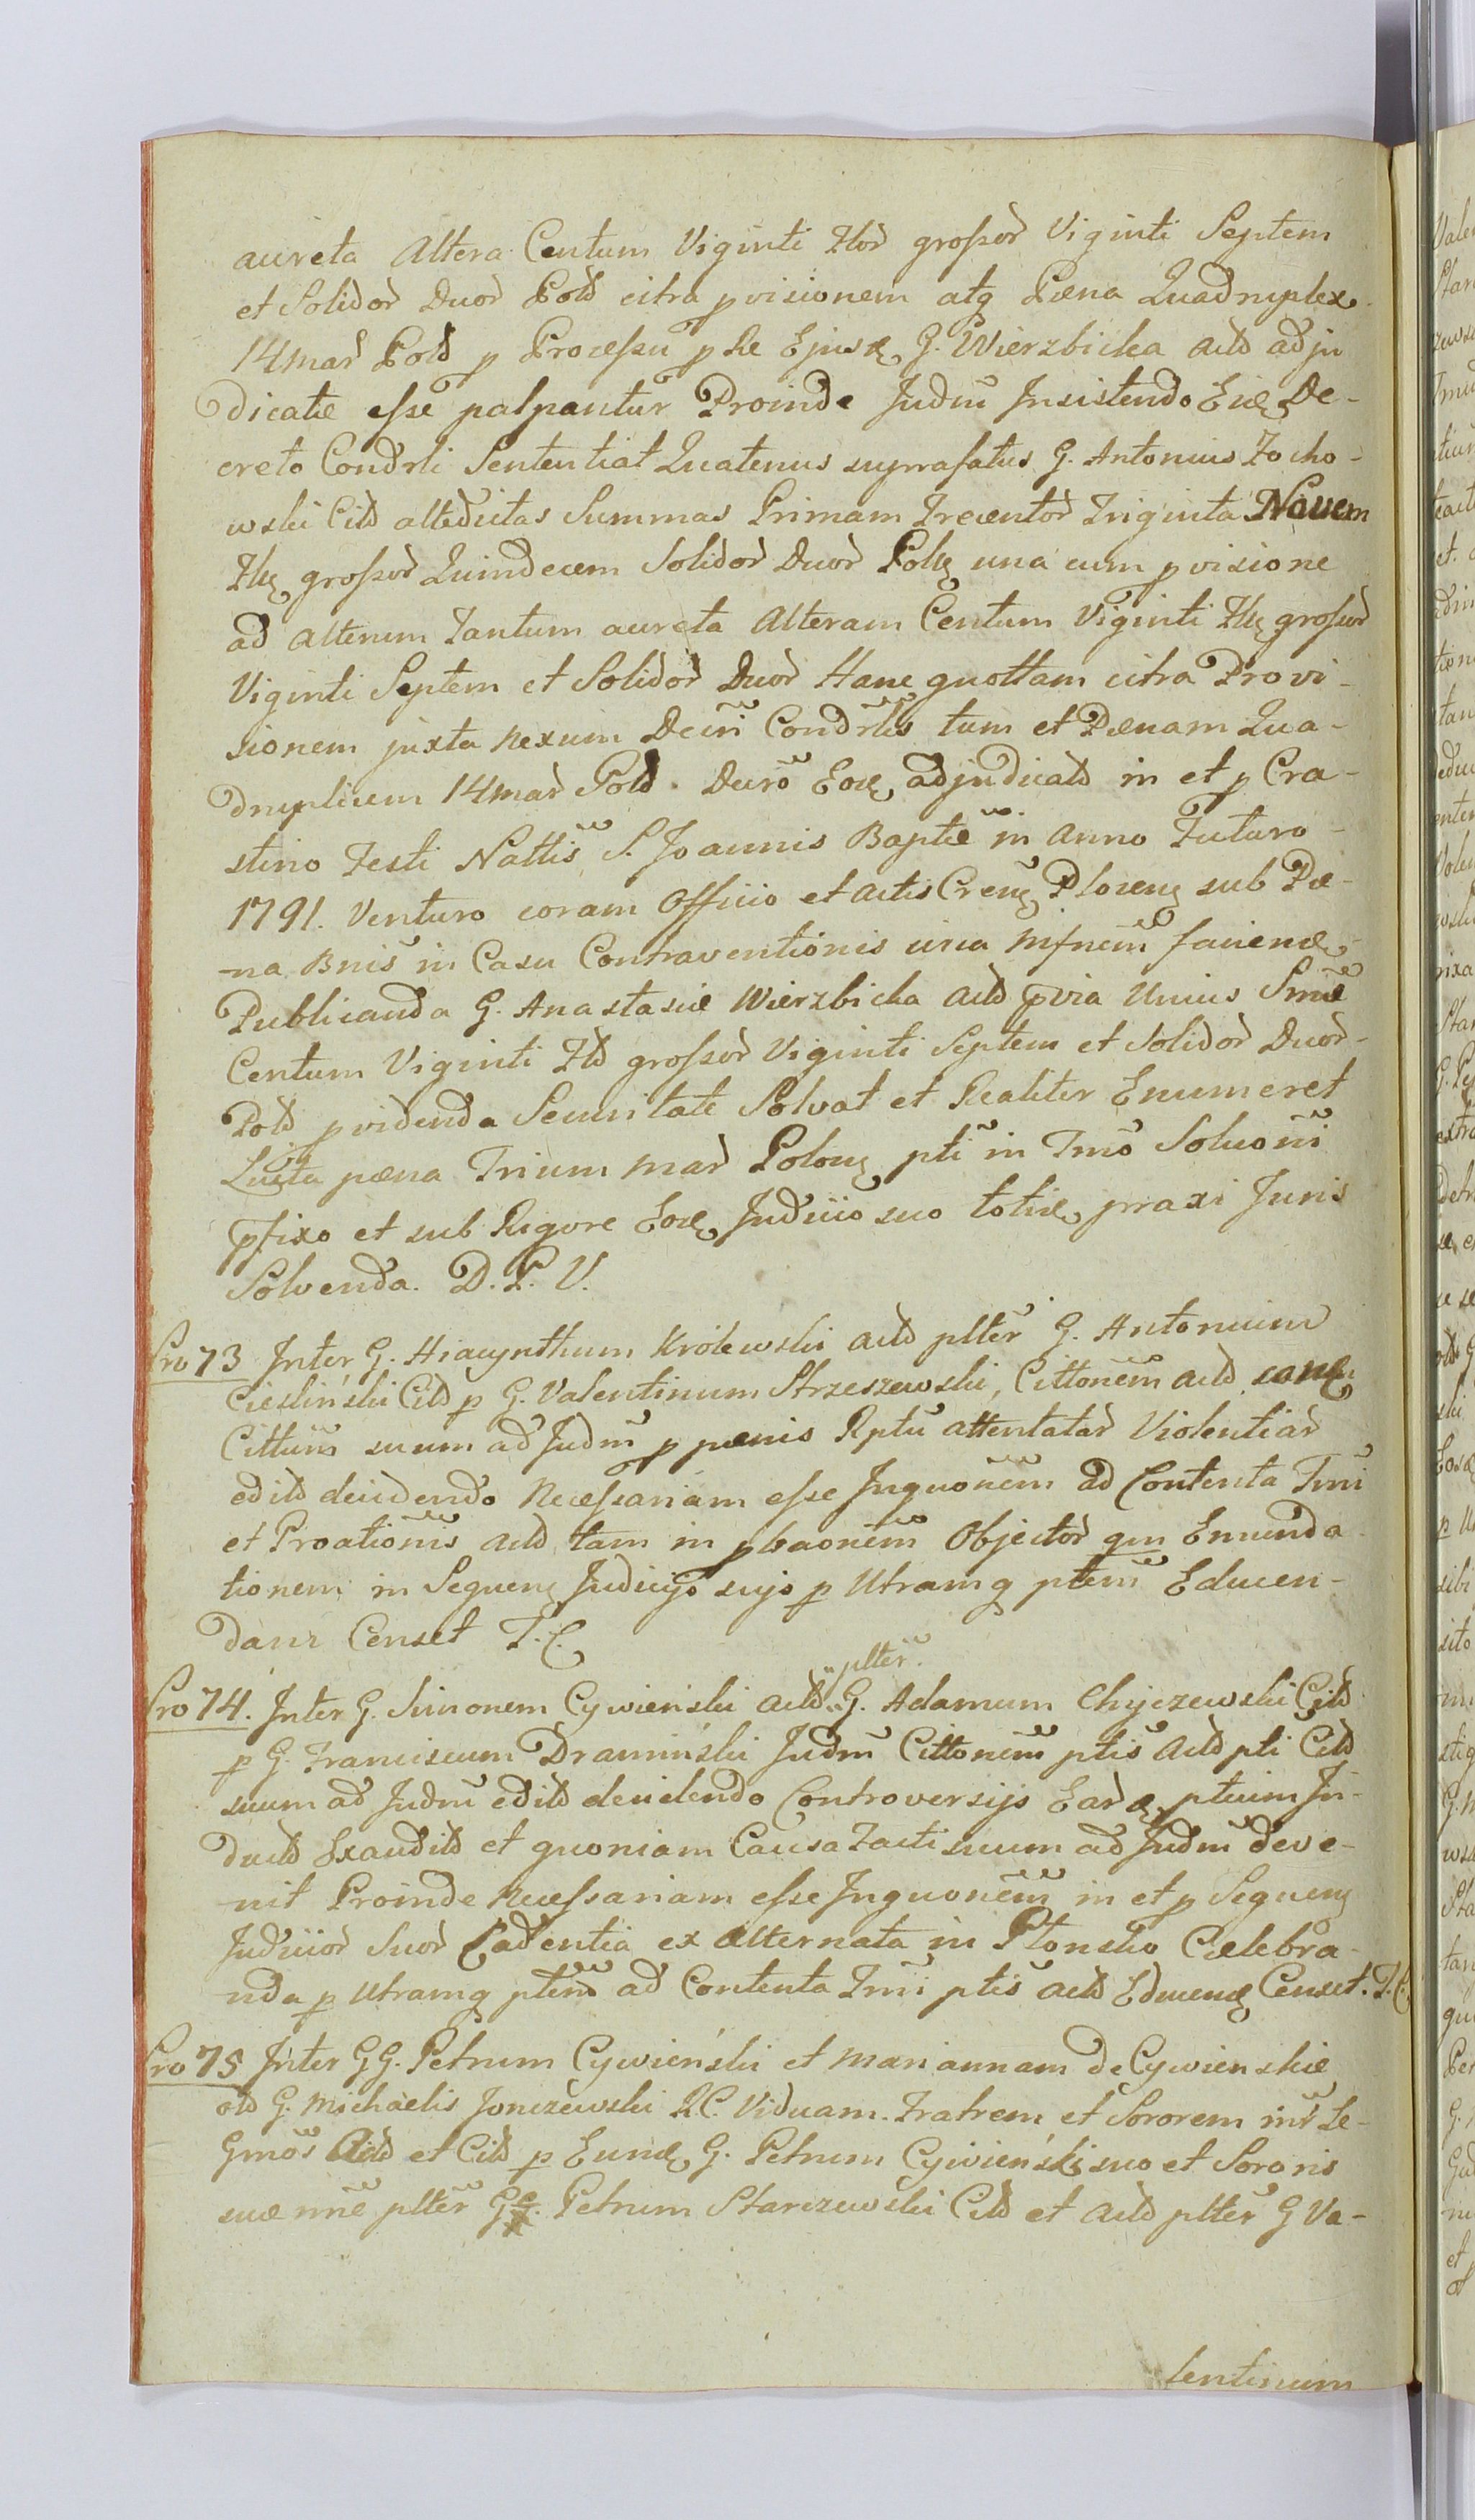 aureta Altera Centum Viginti Flor̃ grossor̃ Viginti Septem
et Solidor̃ Duor̃ Pold citra pvisionem atq Pæna Quadruplex
14 mar̃ Pold p Processu p Re Ejusd G. Wierzbicka Actd adju
dicatæ esse palpantur Proinde Judm̃ Insistendo Eid De-
creto Condrli Sententiat Quatenus suprafatus G. Antonius Zocho-
wski Citd altedictas Summas Primam Trecentor̃ Triginta Novem
Flq grossor̃ Quindecem Solidor̃ Duor̃ Polq una cum pvisione
ad alterum Tantum aureta Alteram Centum Viginti Flq grossor̃
Viginti Septem et Solidor̃ Duor̃ Hanc quottam citra Provi-
sionem juxta nexum Decri Condrlis tum et Pænam Qua-
druplicem 14 mar̃ Pold. Decro Eod adjudicatd in et p Cra-
stino Festi Nattis S. Joannis Baptæ in Anno Futuro
1791. Venturo coram Officio et Actis Crenq Plocenq sub Pæ-
-na Bnis in Casu Contraventionis circa mfnem faciend
Publicanda G. Anastasiæ Wierzbicka Actd pvia Unius Smæ
Centum Viginti Fld grossor̃ Viginti Septem et Solidor̃ Duor̃
Pold pvidenda Securitate Solvat et Realiter Enumeret
Lucta pæna Trium mar̃ Polonq pti in Tmo Soluonis
pfixo et sub Rigore Eod Judicio suo toties praxi Juris
Solvenda. D. P. V.
Pro 73 Inter G. Hiacynthum Królewski actd plter G. Antonium
Ciesliński Citd p G. Valentinum Strzeszewski, Cittonem actd
Cittum suum ad Judm̃ p pænis Rptu attentatar̃ Violentiar̃
editd decidendo Necessariam esse Inquonem ad Contenta Tmi
et Proationis actd tam in pbaonem Objector̃ qm Emunda
tionem in Sequenq Judicijs sujs p Utramq ptem Educen-
dam Censet T. C.
plter.
Pro 74. Inter G. Simonem Cywieński actd G. Adamum Chyczewski Citd
p G. Franciscum Dramiński Judm̃ Cittonem ptis Actd pti Citd
suum ad Judm̃ editd decidendo Controversijs Eard ptium In-
ductd Exauditd et quoniam Causa Facti suum ad Judm̃ deve-
-nit Proinde Necessariam esse Inquonem in et p Sequenq
Judicior̃ Suor̃ Cadentia ex Alternata in Płonsko Cælebra-
nda p Utramq ptem ad Contenta Tmi ptis Actd Educend Censet. T. C.
Pro 75 Inter GG. Petrum Cywieński et Mariannam de Cywienskie
old G. Michaelis Jonczewski R.C. Viduam. Fratrem et Sororem intr Le-
Gmos Actd et Citd p Eund G. Petrum Cywieński suo et Sororis
suæ nne plter G. Petrum Starczewski Citd et Actd plter G Va-
lentinum